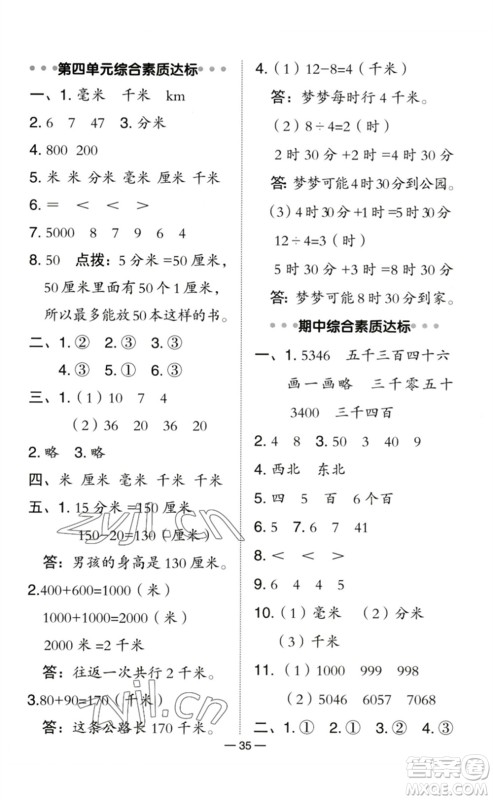 第四单元综合素质达标
一、1. 毫米 千米 km
2. 6 7 47 3. 分米
4. 800 200
5. 米 米 分米 毫米 厘米 千米
6. = < < >
7. 5000 8 7 9 6 4
8. 50 点拨：5 分米 =50 厘米，
50 厘米里面有 50 个 1 厘米，
所以最多能放 50 本这样的书。
二、1. ② 2. ③ 3. ③
4. ③ 5. ① 6. ③
三、1.（1）10 7 4
（2）36 24 20
2. 略 3. 略
四、米 厘米 毫米 千米 厘米
五、1. 15 分米 =150 厘米
150-20=130（厘米）
答：男孩的身高是 130 厘米。
2.400+600=1000（米）
1000+1000=2000（米）
2000 米 =2 千米
答：往返一次共行 2 千米。
3.80+90=170（千米）
答：这条公路长 170 千米。
4.（1）12-8=4（千米）
答：梦梦每时行 4 千米。
（2）8÷4=2（时）
2 时 30 分 +2 时 =4 时 30 分
答：梦梦可能 4 时 30 分到公园。
（3）4 时 30 分
12÷4=3（时）
5 时 30 分 +3 时 =8 时 30 分
答：梦梦可能 8 时 30 分到家。
期中综合素质达标
一、1. 5346 五千三百四十六
画一画略 三千零五十
3400 三千四百
2. 4 8 3. 50 29 5
4. 西北 东北
5. 四 5 百 6 个
6. 5 7. 6 7 41
8. < > < >
9. 6 5 4 3 2
10.（1）毫米 （2）分米
（3）厘米 （4）千米
11.（1）1000 999 998
（2）5046 6057 7068
二、1. ① 2. ① 3. ② 4. ③
35
zyjl.cn
zyjl.cn
答案圈